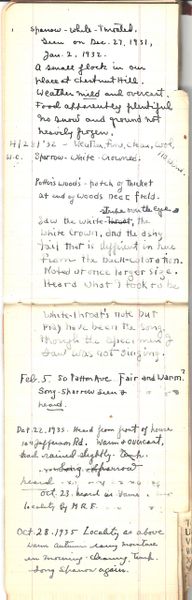 Sparrow - White - Throated.
Seen on Dec. 27, 1931,
Jan. 2, 1932.
A small flock in our
place at Chestnut Hill.
Weather mild and overcast.
Food apparently plentiful
No snow and ground not
heavily frozen.
4/28/32 - Weather, fine, clear, cool,
W.C. Sparrow - White - Crowned.
Potton's Woods - patch of thicket
at end of woods near field.
stripe over the eye
Saw the white throat, the
White Crown, and the ashy
tail that is different in hue
from the back coloration.
Noted at once larger size.
Heard what I took to be
White-throat's note but
may have been the song
though the specimen I
saw was not singing.
Feb. 5. 50 Patton Ave. Fair and Warm
Song-Sparrow seen &
heard.
Oct 22. 1935. Heard from front of house
Jefferson Rd. Warm & overcast,
had rained slightly.
Song Sparrow
heard
Oct 23. heard in same
locality by M.R.F.
Oct 28. 1935 Locality as above
Warm Autumn rainy moisture
in morning - clearing,
Song Sparrow again.